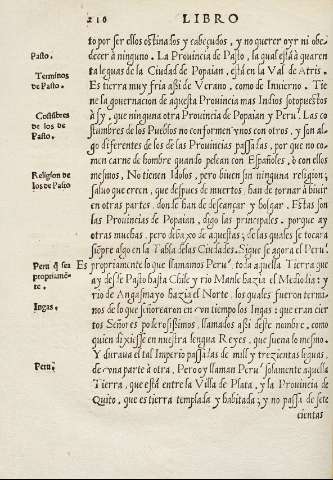 216 LIBRO
to por ser ellos ostinados y cabeçudos, y no querer oyr ni obe-
Pasto. decer à ninguno. La Provincia de Pasto, la qual està à quaren
ta leguas de la Ciudad de Popaian, està en la Val de Atris.
Terminos de Pasto. Es tierra muy fria assi de Verano, como de Inuierno. Tie
ne la governacion de aquesta Provincia mas Indios sotopuestos
Costũbres de los de Pasto. à sy, que ninguna otra Provincia de Popaian y Peru. Las co
stumbres de los Pueblos no conforment vnos con otros, y son al-
go diferentes de los de las Provincias passadas, por que no co-
men carne de hombre quando pelean con Españoles, ò con ellos
Religion de los de Pasto mesmos. No tienen Idolos, pero biuen sin ninguna religion;
saluo que creen, que despues de muertos, han de tornar à biuir
en otras partes, donde han de descançar y holgar. Estas son
las Provincias de Popaian, digo las principales. porque ay
otras muchas, pero debaxo de aquestas; de las quales se tocara
siẽpre algo en la Tabla de las Ciudades. Sigue se agora el Peru.
Peru q̃ sea propriamẽte. Es propriamente lo que llamamos Peru, toda aquella Tierra que
ay desde Pasto hasta Chile y rio Manle hazia el Mediodia: y
rio de Angasmayo hazia el Norte, los quales fueron termi-
Ingas. nos de lo que señorearon en vn tiempo los Ingas: que eran cier
tos Señores poderosissimos, llamados assi deste nombre, como
quien dixiesse en nuestra lengua Reyes, que suena lo mesmo.
Y duraua el tal Imperio passadas de mill y trezientas leguas,
Peru. de vna parte à otra. Pero oy llaman Peru solamente aquella
Tierra, que està entre la Villa de Plata, y la Provincia de
Quito, que es tierra templada y habitada; y no passa de sete
cientas